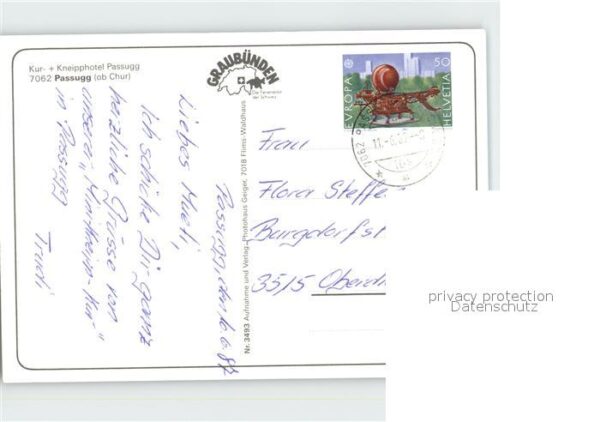 Kur- + Kneipphotel Passugg
7062 Passugg (ob Chur)
GRAUBÜNDEN
Die Ferienecke
der Schweiz
EUROPA
50
HELVETIA
7062
11.-6.
Passugg, den 10.6.87
Liebes Mueti,
Ich schicke Dir ganz
herzliche Grüsse von
unserer "Minikneipp-Kur"
in Passugg
Trudi
Nr. 3493 Aufnahme und Verlag: Photohaus Geiger, 7018 Flims-Waldhaus
Frau
Flora Steffe
Burgdorfst
3515 Oberdi
privacy protection
Datenschutz